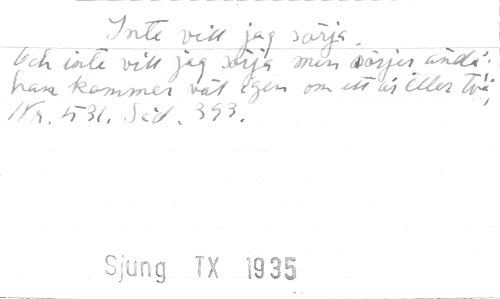 Inte vill jag sörja.
Och inte vill jag sörja men sörjer ändå:
han kommer väl igen om ett år eller två,
Nr. 531. Sid. 393.
Sjung TX 1935